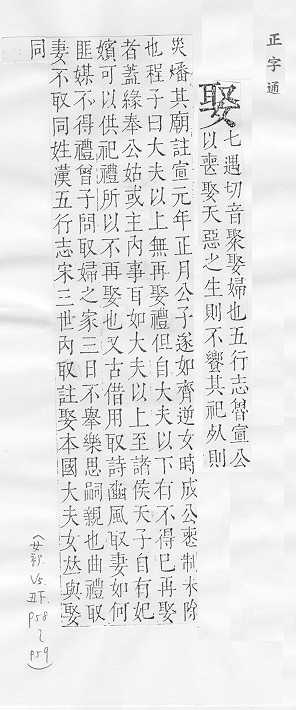 正字通
娶
七遇切音聚娶婦也五行志魯宣公
以喪娶天惡之生則不饗其祀死則
災燔其廟註宣元年正月公子遂如齊逆女時成公喪制未除
也程子曰大夫以上無再娶禮但自大夫以下有不得已再娶
者蓋緣奉公姑或主內事耳如大夫以上至諸侯天子自有妃
嬪可以供祀禮所以不再娶也又古借用取詩豳風取妻如何
匪媒不得禮曾子問取婦之家三日不舉樂思嗣親也曲禮取
妻不取同姓漢五行志宋三世內取註娶本國大夫女㳒與娶
同
(女部. V5. 丑下. P58 ~ P59)